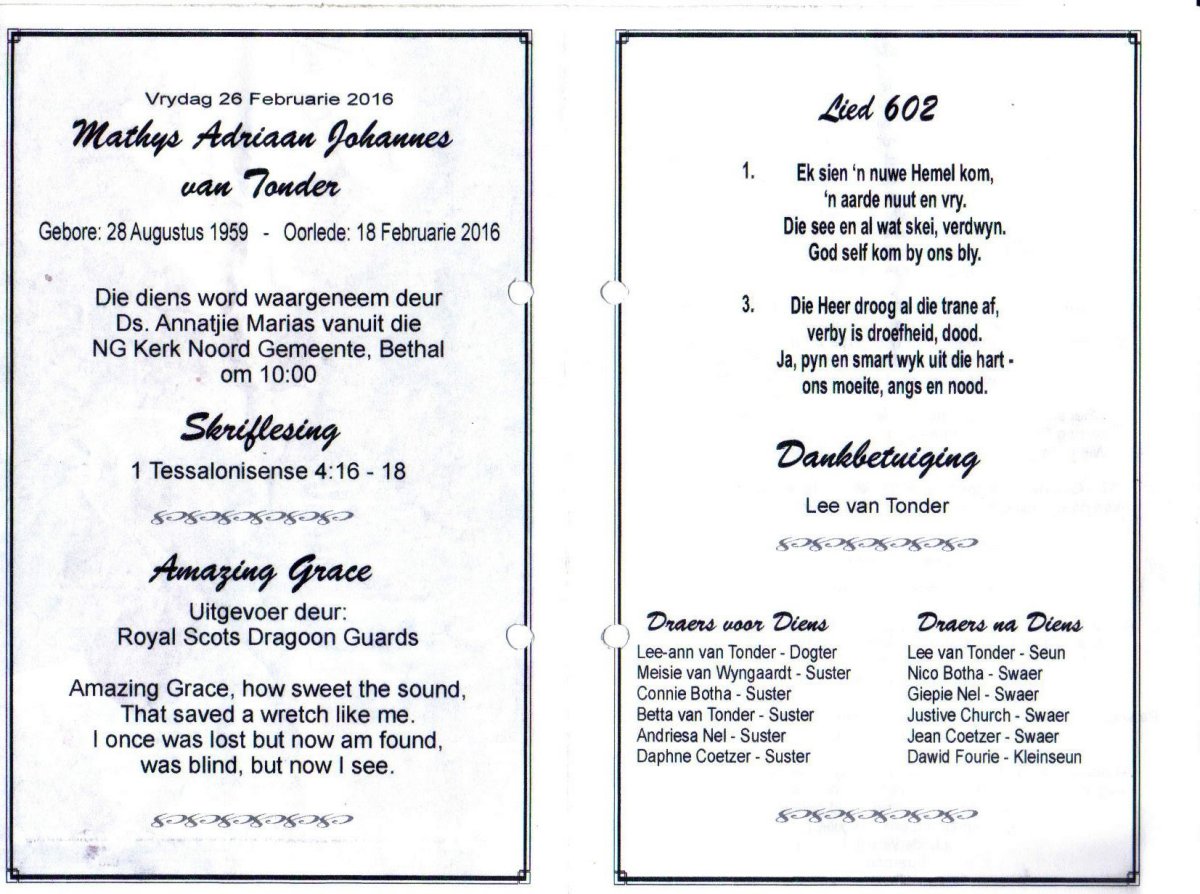 Vrydag 26 Februarie 2016
Mathys Adriaan Johannes
van Tonder
Gebore: 28 Augustus 1959 - Oorlede: 18 Februarie 2016
Die diens word waargeneem deur
Ds. Annatjie Marias vanuit die
NG Kerk Noord Gemeente, Bethal
om 10:00
Skriflesing
1 Tessalonisense 4:16 - 18
Amazing Grace
Uitgevoer deur:
Royal Scots Dragoon Guards
Amazing Grace, how sweet the sound,
That saved a wretch like me.
I once was lost but now am found,
was blind, but now I see.
Lied 602
1. Ek sien ‘n nuwe Hemel kom,
‘n aarde nuut en vry.
Die see en al wat skei, verdwyn.
God self kom by ons bly.
3. Die Heer droog al die trane af,
verby is droefheid, dood.
Ja, pyn en smart wyk uit die hart -
ons moeite, angs en nood.
Dankbetuiging
Lee van Tonder
Draers voor Diens
Lee-ann van Tonder - Dogter
Meisie van Wyngaardt - Suster
Connie Botha - Suster
Betta van Tonder - Suster
Andriesa Nel - Suster
Daphne Coetzer - Suster
Draers na Diens
Lee van Tonder - Seun
Nico Botha - Swaer
Giepie Nel - Swaer
Justive Church - Swaer
Jean Coetzer - Swaer
Dawid Fourie - Kleinseun